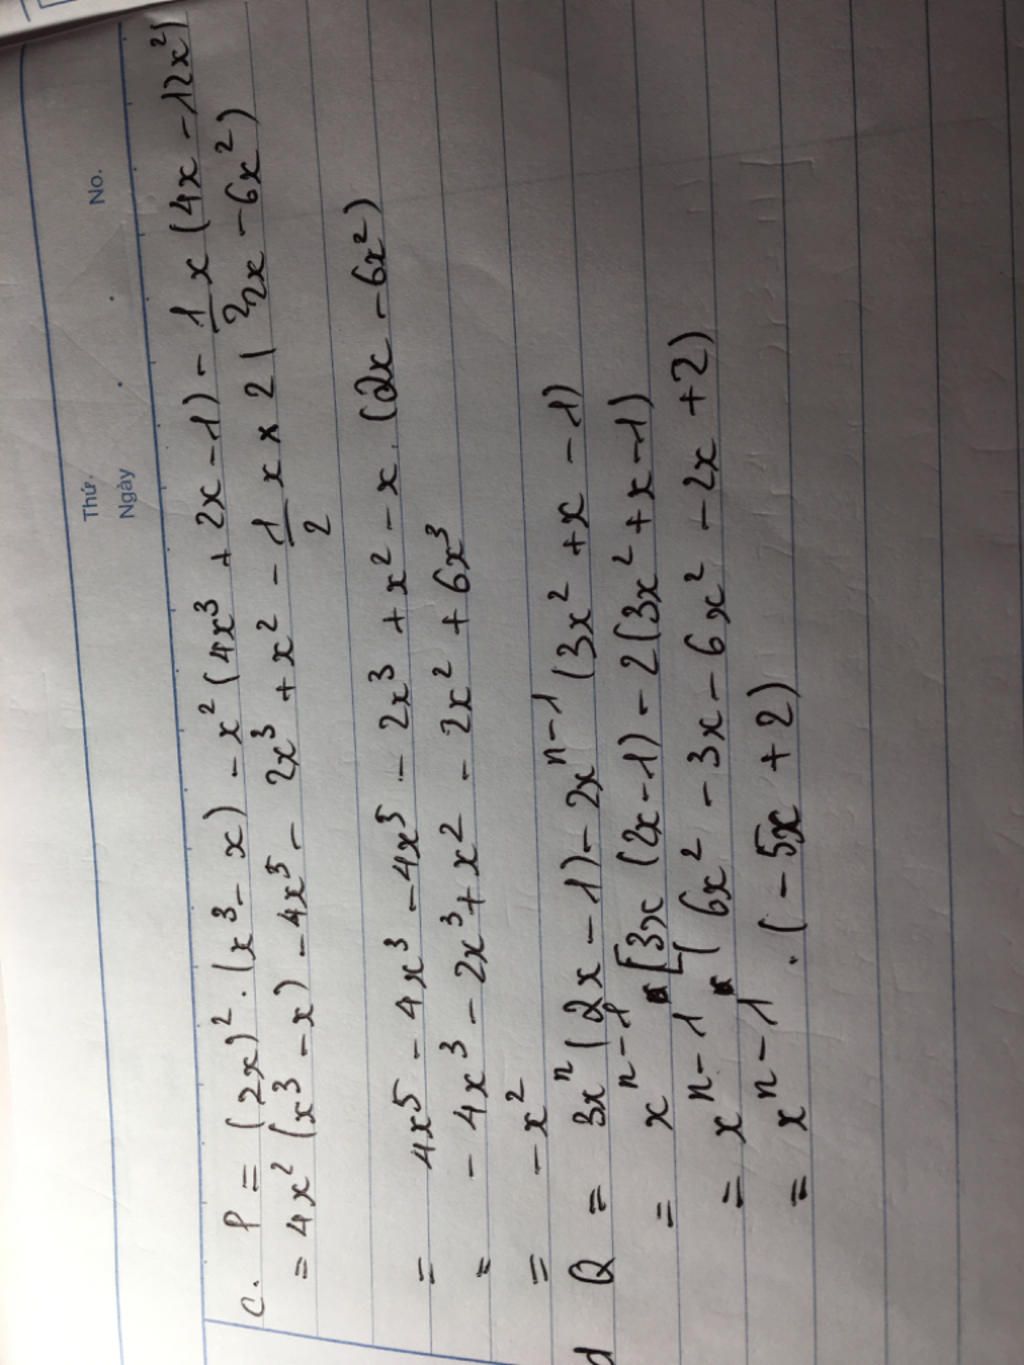 Thứ.
Ngày
No.
c. P = (2x)² . (x³ - x) - x² (4x³ + 2x - 1) - 1/2 x (4x - 12x²)
= 4x² (x³ - x) - 4x⁵ - 2x³ + x² - 1/2 x × 2 ( 2x - 6x²)
= 4x⁵ - 4x³ - 4x⁵ - 2x³ + x² - x. (2x - 6x²)
= - 4x³ - 2x³ + x² - 2x² + 6x³
= - x²
d Q = 3xⁿ ( 2x - 1) - 2xⁿ⁻¹ (3x² + x - 1)
= xⁿ⁻¹ [3x (2x - 1) - 2 (3x² + x - 1)
= xⁿ⁻¹ ( 6x² - 3x - 6x² - 2x + 2)
= xⁿ⁻¹ . ( - 5x + 2)